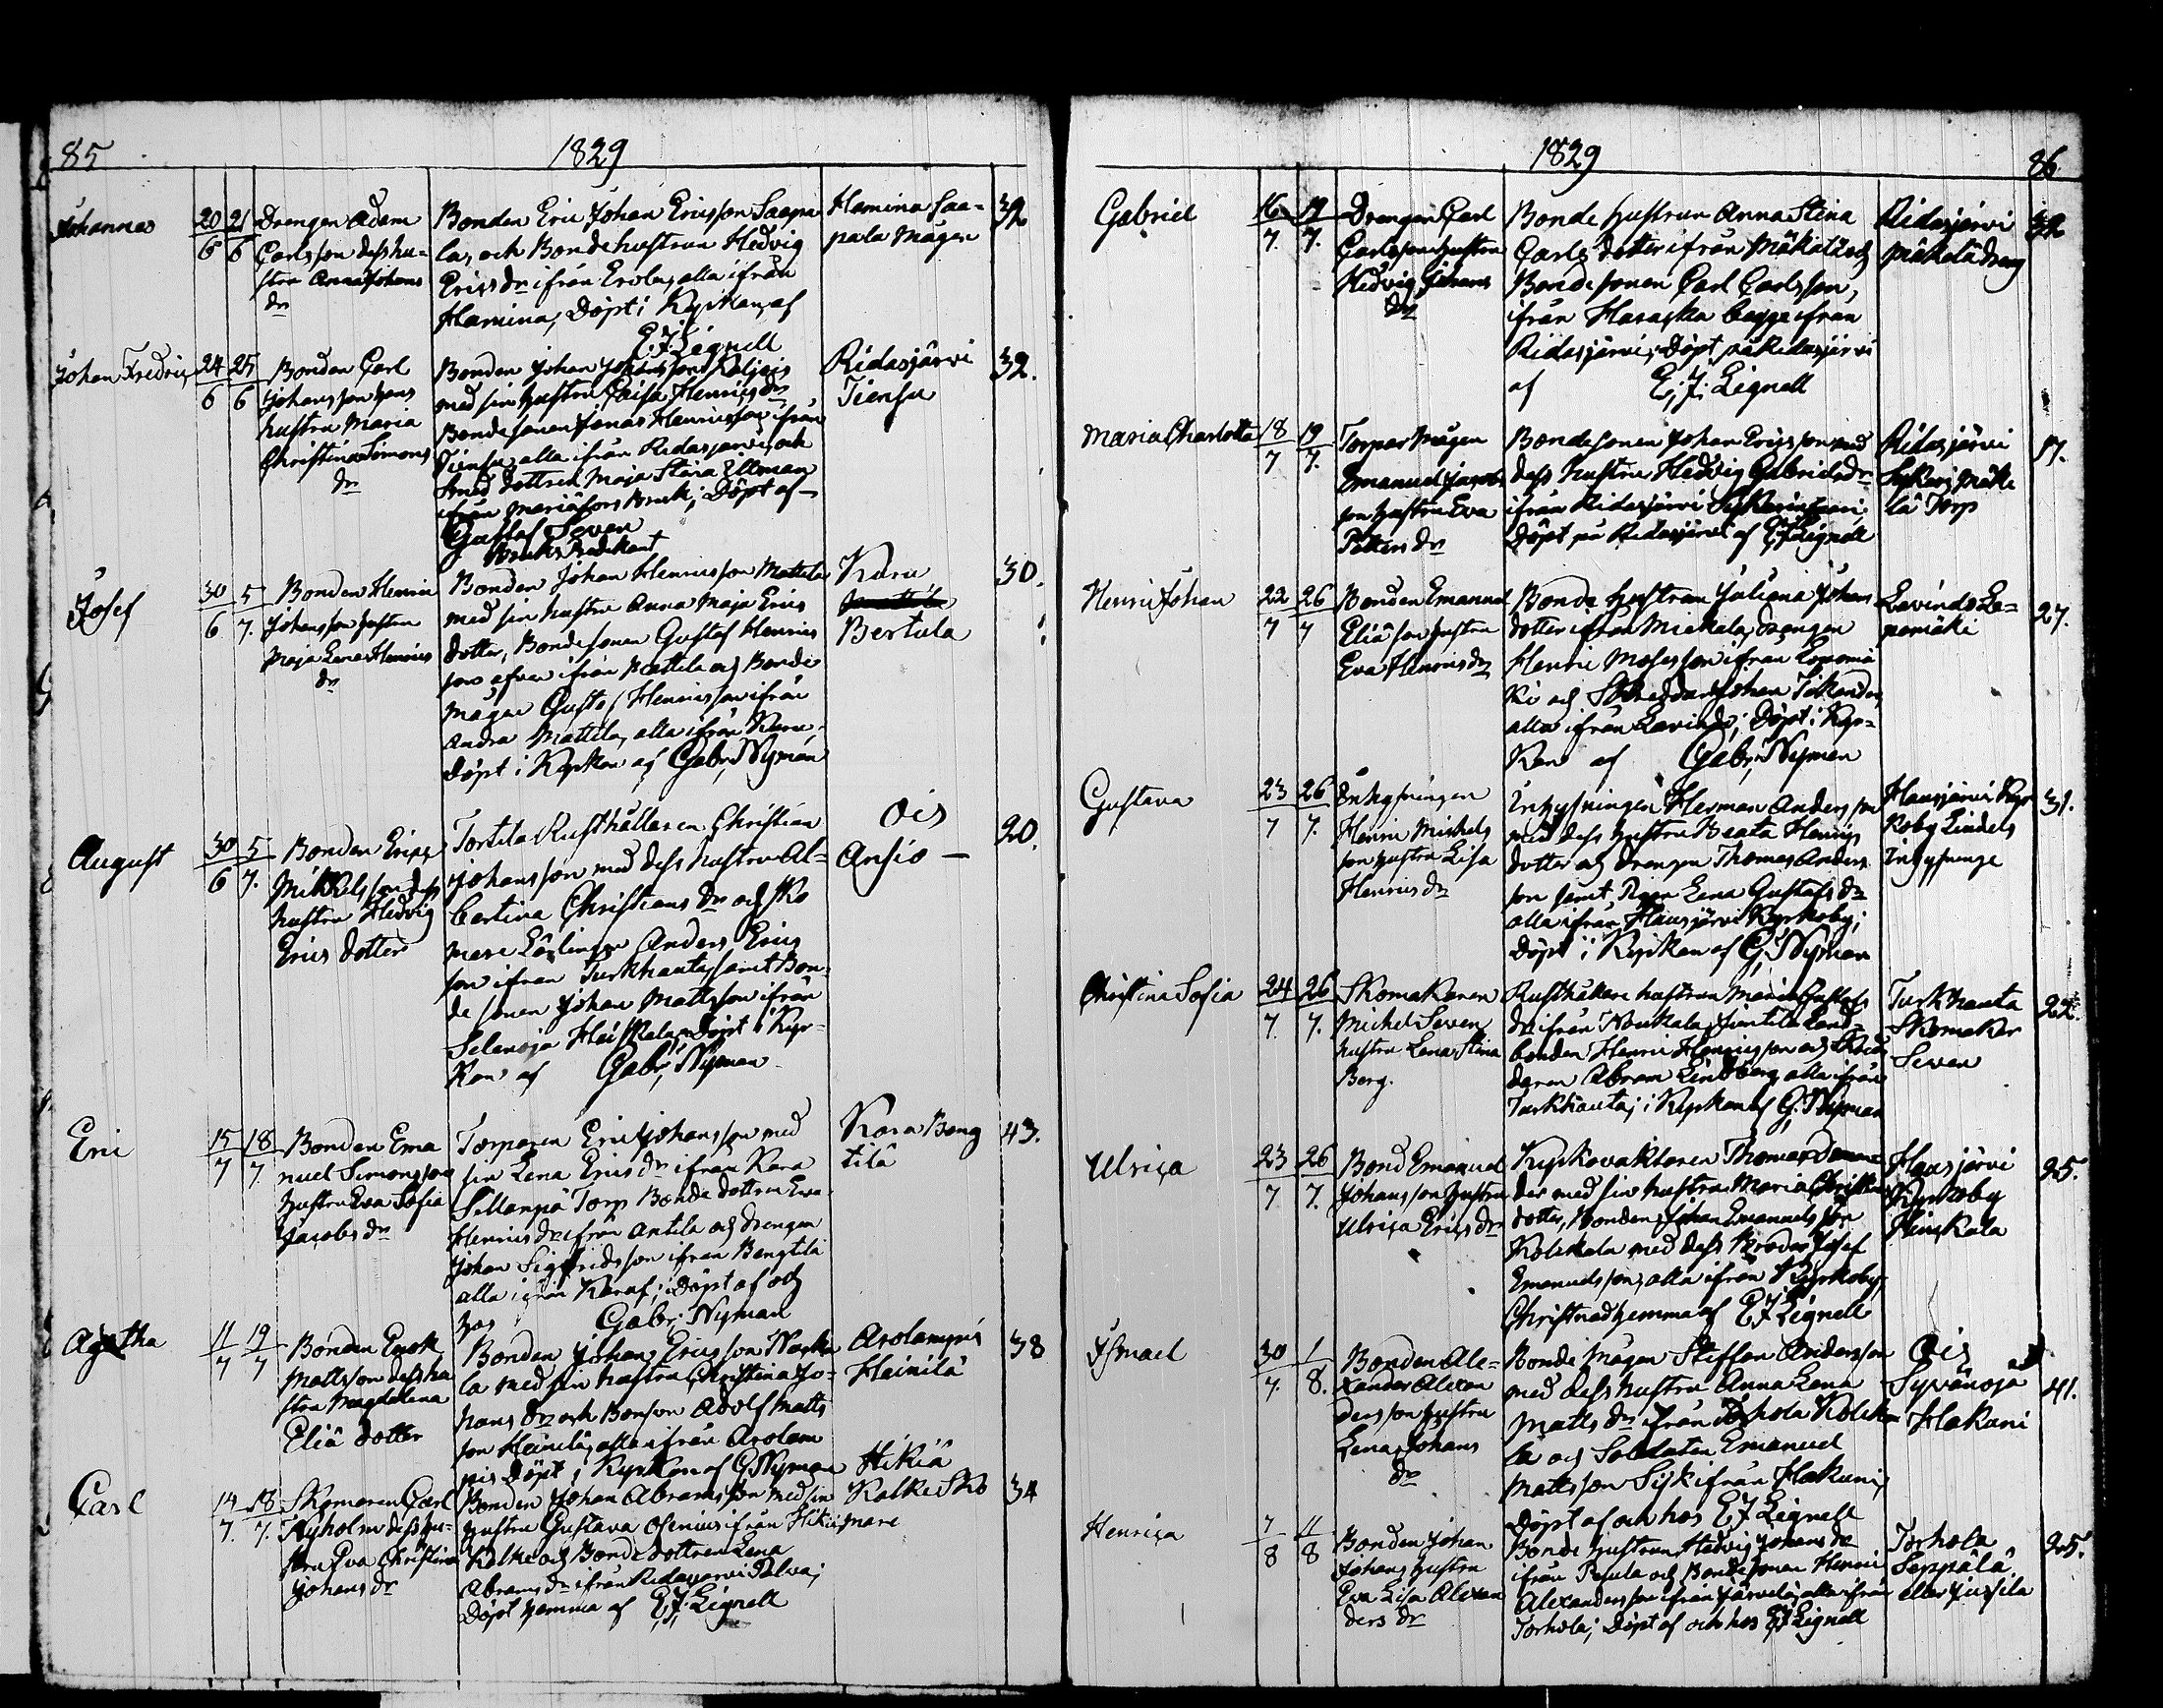 85
1829
Johannes
20 21
6 6
Drengen Adam
Carlsson dess hu-
stru Anna Johans
dr
Bonden Eric Johan Ericsson Saapa
la, och Bondehustrun Hedvig
Erics dr ifrån Erola, alla ifrån
Hamina, Döpt i Kyrkan, af
E. J. Lignell
Hamina Saa-
pala Mågen
32
Johan Fredric
24 25
6 6
Bonden Carl
Johansson hans
hustru Maria
Christina Simons
dr
Bonden Johan Johansson
med sin hustru Caisa Henrics dr
Bondesonen Jonas Henricsson ifrån
Tiensu, alla ifrån Ridasjärvi, och
Smed dottren Maja Stina Ellman
ifrån Mariæfors Bruk; Döpt af
Gustaf Seven
Bruks Predikant
Ridasjärvi
Tiensu
32.
Josef
30 5
6 7.
Bonden Henric
Johansson hustru
Maja Lena Henrics
dr
Bonden Johan Henricsson Mattila
med sin hustru Anna Maja Erics
dotter, Bondesonen Gustaf Henrics
son afven ifrån Mattila och Bonde
mågen Gustaf Henricsson ifrån
Andra Mattila, alla ifrån Kara,
Döpt i Kyrkan af Gabr. Nyman
Kara
Bertula
30.
August
30 5
6 7.
Bonden Erics
Mikkelsson dess
hustru Hedvig
Erics dotter
Tortila Rusthållaren Christian
Johansson med dess hustru Al-
bertina Christians dr och Sko
mare Lärlingen Anders Erics
son ifrån Turkhauta, samt Bon-
de sonen Johan Mattsson ifrån
Selenoja Döpt i Kyr-
kan af Gabr. Nyman
Ois
Ansio —
20.
Eric
15 18
7 7.
Bonden Ema
nuel Simonsson
hustru Eva Sofia
Jacobs dr
Torparen Eric Johansson med
sin Lena Erics dr ifrån Kara
Sillanpä Torp Bonde dottren Eva
Henrics dr ifrån Antila och drengen
Johan Sigfridsson ifrån Bengtilä
alla ifrån Kara; Döpt af och
hos Gabr. Nyman
Kara Beng
tilä
43.
Agatha
11 19
7 7
Bonden Enok
Mattsson dess hu
stru Magdalena
Eliæ dotter
Bonden Johan Ericsson
la med sin hustru Christina Jo-
hans dr och Bonson Adolf Matts
son Heinilä, alla ifrån Arolam
pis Döpt i Kyrkan af G. Nyman
Arolampis
Heinilä
38
Carl
14 18
7. 7.
Skomaren Carl
Nyholm dess hu-
stru Eva Christina
Johans dr
Bonden Johan Abramsson med sin
hustru Gustava Osenius ifrån Hikiä
Kolke och Bonde dottren Lena
Abrams dr ifrån Ridasjärvi Palva;
Döpt hemma af E. J. Lignell
Hikiä
Kolke Sko
mare
34
1829
86
Gabriel
16 19
7. 7.
Drengen Carl
Carlsson hustru
Hedvig Johans
dr
Bonde hustrun Anna Stina
Carls dotter ifrån Mäkelä och
Bondesonen Carl Carlsson,
ifrån Haraska begge ifrån
Ridasjärvi; Döpt på Ridasjärvi
af E. J. Lignell
Ridasjärvi
Mäkelä dreng
32
Maria Charlotta
18 19
7 7.
Torpar Mågen
Emanuel Jacobs
son hustru Eva
Petters dr
Bondesonen Johan Ericsson med
dess hustru Hedvig Gabriels dr
ifrån Ridasjärvi
Döpt på Ridasjärvi af E J Lignell
Ridasjärvi
Mäke
lä Torp
Henric Johan
22 26
7 7
Bonden Emanuel
Eliæ son hustru
Eva Henrics dr
Bonde hustrun Juliana Johans
dotter ifrån Mickala, drengen
Henric Mosesson ifrån Lepomä
ki och Skreddar Johan Tikander
alla ifrån Lavinds; Döpt i Kyr-
kan af Gabr. Nyman
Lavinds Le-
pomäki
27.
Gustava
23 26
7 7.
Inhysningen
Henric Michels
son hustru Lisa
Henrics dr
Inhysningen Herman Andersson
med dess hustru Beata Henrics
dotter och drengen Thomas Anders
son samt Pigan Lena Gustafs dr
alla ifrån Hausjärvi Kyrkoby;
Döpt i Kyrkan af G. Nyman
Hausjärvi Kyr
koby Lindels
Inhysninge
31.
Christina Sofia
24 26
7. 7.
Skomakaren
Michel Seven
hustru Lena Stina
Berg.
Rusthållare hustrun Maria Gustafs
dr ifrån Noukala, Land
bonden Henric Henricsson och Skræd
daren Abram Lindberg, alla ifrån
Turkhauta; i Kyrkan af G. Nyman
Turkhauta
Skomakar
Seven
22.
Ulrica
23 26
7 7.
Bond Emanuel
Johansson hustru
Ulrica Erics dr
Kyrkovaktaren Thomas
der med sin hustru Maria Christina
dotter, Bonden Johan Emanuelsson
Kolckala med dess Broder Josef
Emanuelsson, alla ifrån Kyrkoby,
Christnad hemma af E J Lignell
Hausjärvi
Kyrkoby
25.
Ismael
30 1
7. 8.
Bonden Ale-
xander Alexan
dersson hustru
Lena Johans
dr
Bonde Mågen Steffan Andersson
med dess hustru Anna Lena
Matts dr ifrån Torhola
la och Soldaten Emanuel
Mattsson Sisk ifrån Hakuni;
Döpt af och hos E J Lignell
Ois
Syvänoja
Hakuni
41.
Henrica
7 11
8 8
Bonden Johan
Johans hustru
Eva Lisa Alexan
ders dr
Bonde hustrun Hedvig Johans dr
ifrån Paula och Bondesonen Henric
Alexandersson ifrån Järvelä, alla ifrån
Torhola; Döpt af och hos E J Lignell
Torhola
Seppälä
eller Jussila
25.